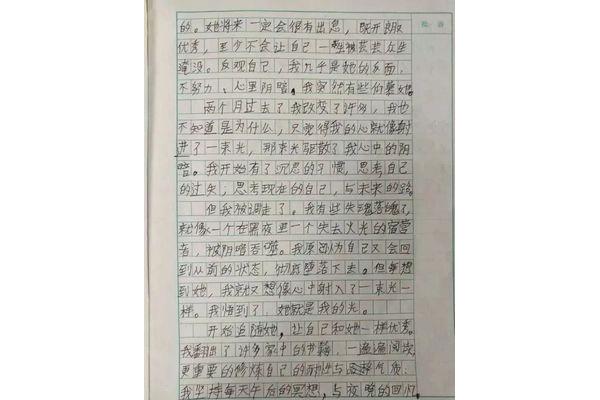 批 语
的。她将来一定会很有出息，既开朗又
优秀，至少不会让自己一生被芸芸众生
淹没。反观自己，我几乎是她的反面，
不努力、心里阴暗。我突然有些仰慕她。
两个月过去了我改变了许多，我也
不知道是为什么，只觉得我的心就像射
进了一束光，那束光驱散了我心中的阴
暗。我开始有了沉思的习惯，思考自己
的过失，思考现在的自己，与未来的路。
但我被调走了。我有些失魂落魄了，
就像一个在黑夜里一个失去火光的宿营
者，被阴暗吞噬。我原以为自己又会回
到从前的状态，彻底堕落下去。但每想
到她，我就又想像心中射入了一束光一
样。我悟到了，她就是我的光。
开始追随她，让自己和她一样优秀。
我翻出了许多家中的书籍，一遍遍阅读，
更重要的修炼自己的耐性与 气质，
我坚持每天午后的冥想，与夜晚的回忆，